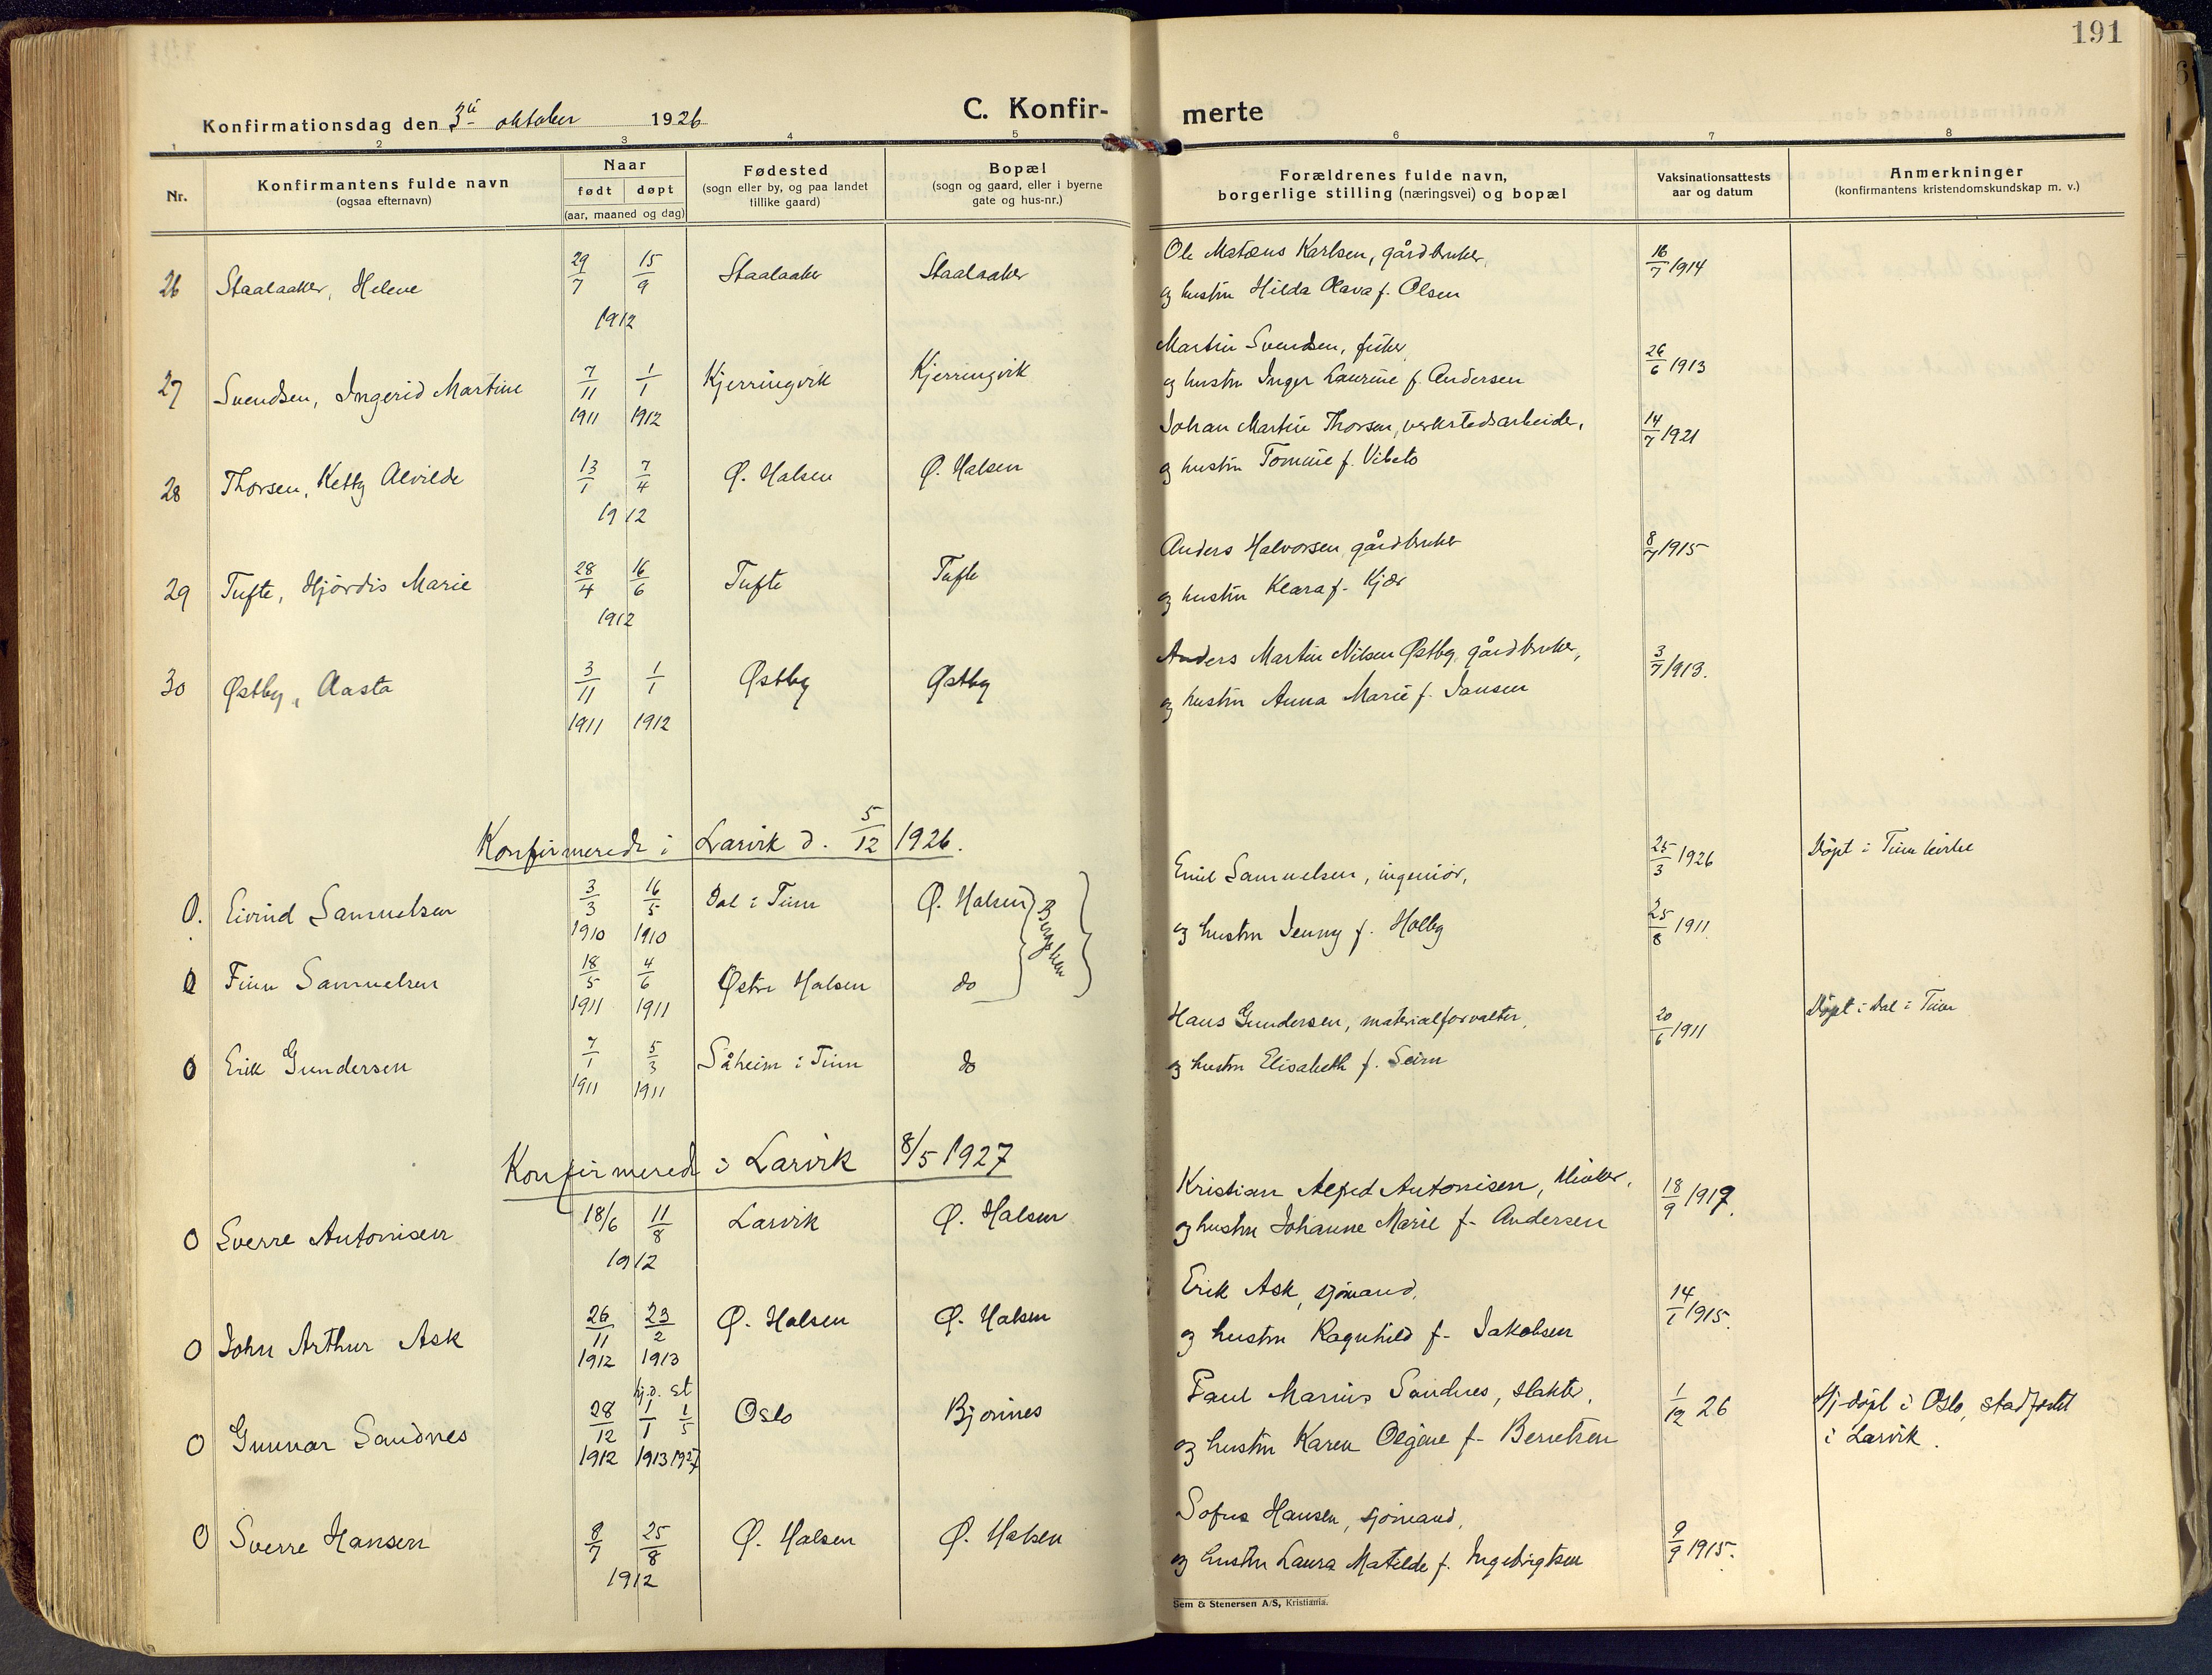 191
Konfirmationsdag den 3die oktober 1926
C. Konfir-
merte
1 2 3 4 5 6 7 8
Nr.
Konfirmantens fulde navn
(ogsaa efternavn)
Naar
født døpt
(aar, maaned og dag)
Fødested
(sogn eller by, og paa landet
tillike gaard)
Bopæl
(sogn og gaard, eller i byerne
gate og hus-nr.)
Forældrenes fulde navn,
borgerlige stilling (næringsvei) og bopæl
Vaksinationsattests
aar og datum
Anmerkninger
(konfirmantens kristendomskundskap m. v.)
26 Staalaaker, Helene 29/7 15/9 1912 Staalaaker Staalaaker
Ole Matæus Karlsen, gårdbruker, 16/7 1914
og hustru Hilda Olava f. Olsen
27 Svendsen, Ingerid Martine 7/11 1911 1/1 1912 Kjerringvik Kjerringvik
Martin Svendsen, fisker, 26/6 1913
og hustru Inger Laurine f. Andersen
28 Thorsen, Ketty Alvilde 13/1 7/4 1912 Ø. Halsen Ø. Halsen
Johan Martin Thorsen, verkstedsarbeider, 14/7 1921
og hustru Tomine f. Vibeto
29 Tufte, Hjördis Marie 28/4 16/6 1912 Tufte Tufte
Anders Halvorsen, gårdbruker 8/7 1915
og hustru Klara f. Kjær
30 Østby, Aasta 3/11 1911 1/1 1912 Østby Østby
Anders Martin Nilsen Østby, gårdbruker, 3/7 1913.
og hustru Anna Marie f. Jansen
Konfirmerede i Larvik d. 5/12 1926.
0. Eivind Samuelsen 3/3 1910 16/5 1910 Dal i Tinn Ø. Halsen
Emil Samuelsen, ingeniør, 25/3 1926 Döpt i Tinn kirke
og hustru Jenny f. Holby 25/8 1911
0 Finn Samuelsen 18/5 1911 4/6 1911 Østre Halsen do
0 Erik Gundersen 7/1 1911 5/3 1911 Såheim i Tinn do
Hans Gundersen, materialforvalter, 20/6 1911 Döpt i Dal i Tinn
og hustru Elisabeth f. Seim
Konfirmered i Larvik 8/5 1927
0 Sverre Antonisen 18/6 11/8 1912 Larvik Ø. Halsen
Kristian Alfred Antonisen, klinker, 18/9 1917.
og hustru Johanne Marie f. Andersen
0 John Arthur Ask 26/11 1912 23/2 1913 Ø. Halsen Ø. Halsen
Erik Ask, sjömand, 14/1 1915.
og hustru Ragnhild f. Jakobsen
0 Gunnar Sandnes 28/12 1912 hj.d. 1/1 1913 st 1/5 1927 Oslo Bjørnnes
Paul Marius Sandnes, slakter, 1/12 26 Hj.döpt i Oslo, stadfestet
og hustru Karen Olgine f. Berntsen i Larvik.
0 Sverre Hansen 8/7 25/8 1912 Ø. Halsen Ø. Halsen
Sofus Hansen, sjömand, 9/9 1915.
og hustru Laura Matilde f. Ingebrigtsen
Sem & Stenersen A/S, Kristiania.